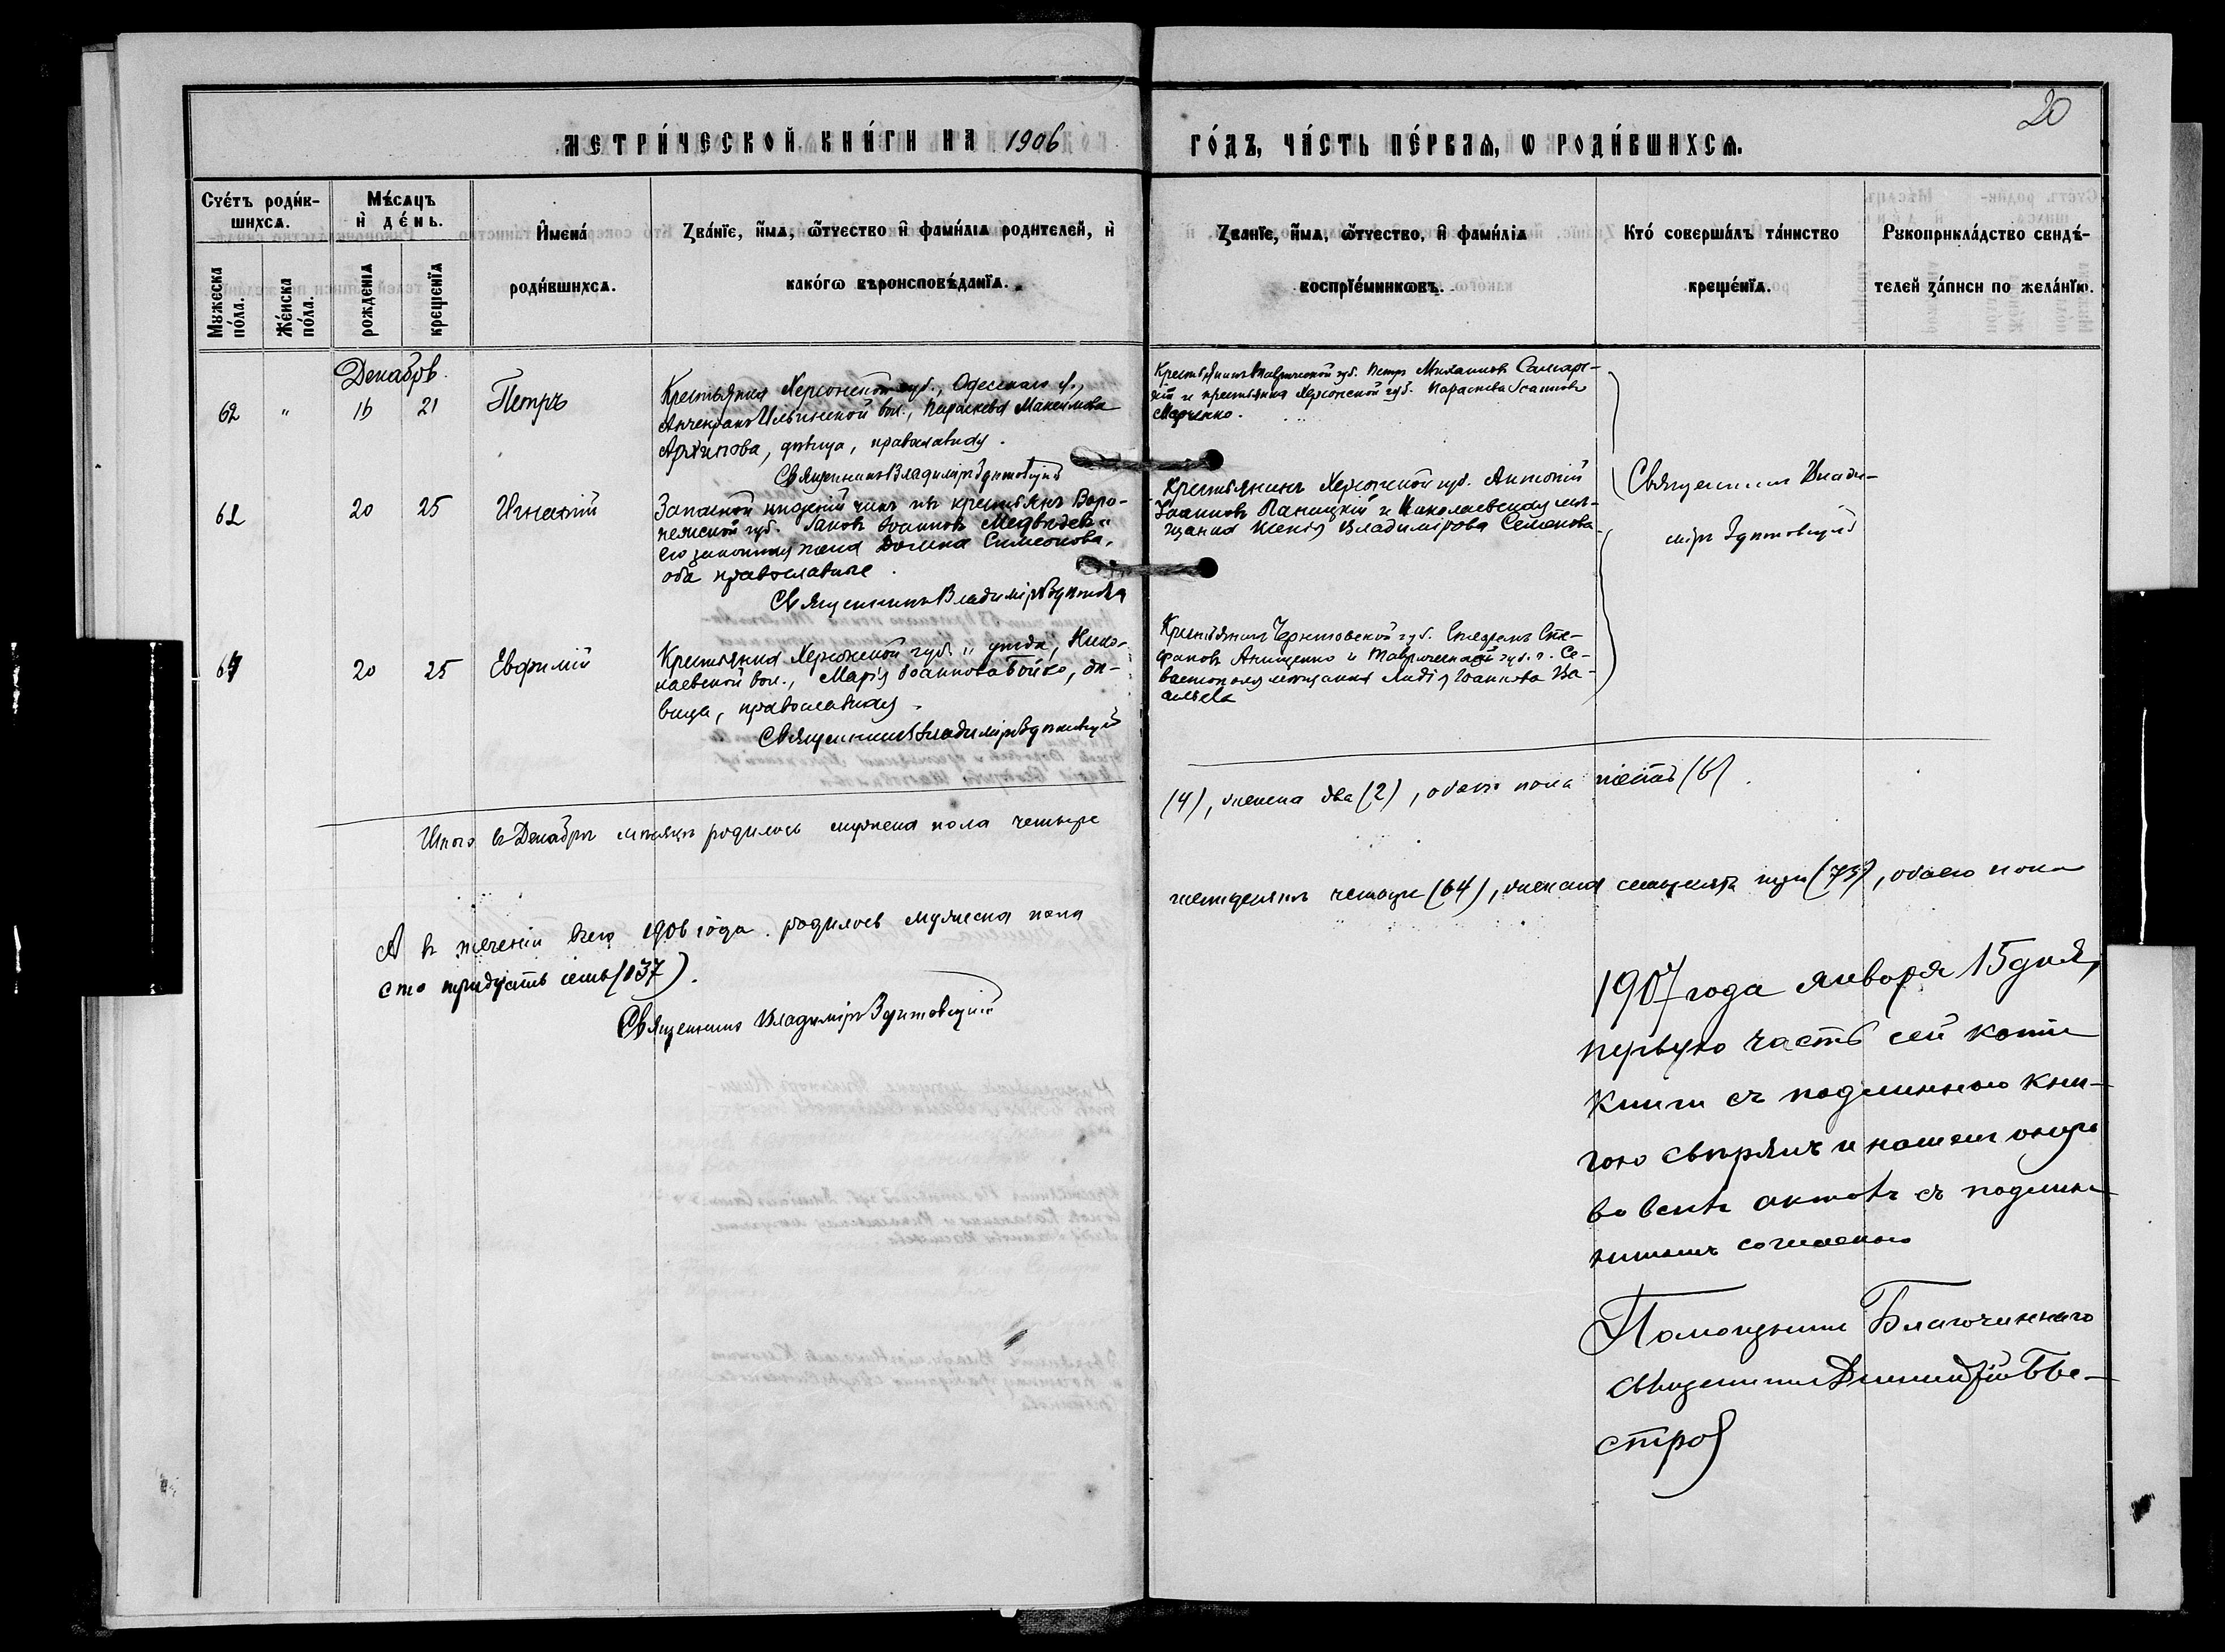 20
МЕТРИ́ЧЕСКОЙ КНИ́ГИ НА 1906 ГО́ДЪ, ЧА́СТЬ ПЕ́РВАѦ, Ѡ РОДИ́ВШИХСѦ.
Сче́тъ роди́в-
шихсѧ.
Мꙋжеска
по́ла.
Же́нска
по́ла.
Мѣ́сѧцъ
и҆ де́нь.
рожденїѧ
крещенїѧ
И҆мена́
роди́вшихсѧ.
Зва́нїе, и҆́мѧ, ѻ҆́тчество и҆ фами́лїѧ родителей, и҆
како́гѡ вѣроисповѣ́данїѧ.
Зва́нїе, и҆́мѧ, ѻ҆́тчество, и҆ фами́лїѧ
воспрїе́мникѡвъ.
Кто́ соверша́лъ та́инство
креще́нїѧ.
Рꙋкоприкла́дство свидѣ́-
телей за́писи по жела́нїю.
Декабрь.
62 " 16 21 Петръ
Крестьянка Херсонской губ., Одесскаго у.,
Анчекрако Ильинской вол., Параскева Максимова
Архипова, дѣвица, православная.
Священникъ Владиміръ
Крестьянинъ Таврической губ. Петръ Михаиловъ
и крестьянка Херсонской губ. Параскева Іоаннова
Марченко.
20 25 Игнатій
Запасной нижній чинъ изъ крестьянъ Воро-
нежской губ. Іаковъ Іоанновъ Медвѣдевъ и
его законная жена Домна Симеонова,
оба православные.
Священникъ Владиміръ
Крестьянинъ Херсонской губ. Антоній
Іоанновъ Паницкій и Николаевская мѣ-
щанка Ксенія Владимірова Семенова
Священникъ Влади-
міръ
64 20 25 Евфимій
Крестьянка Херсонской губ. и уѣзда, Нико-
лаевской вол., Марія Іоаннова Бойко, дѣ-
вица, православная.
Священникъ Владиміръ
Крестьянинъ Черниговской губ. Сте-
фановъ Анищенко и Таврической губ. г. Се-
вастополя мѣщанка Лидія Іоаннова Ва-
сильева
Итого въ Декабрѣ мѣсяцѣ родилось мужеска пола четыре
(4), женска два (2), обоего пола шесть (6).
А въ теченіи всего 1906 года родилось мужеска пола
шестьдесятъ четыре (64), женска семьдесятъ три (73), обоего пола
сто тридцать семь (137).
Священникъ Владиміръ
1907 года января 15 дня,
первую часть сей копіи
книги съ подлинною кни-
гою свѣрялъ и нашелъ оную
во всѣхъ актахъ съ подлин-
нымъ согласною
Помощникъ Благочиннаго
священникъ Димитрій Бы-
стров